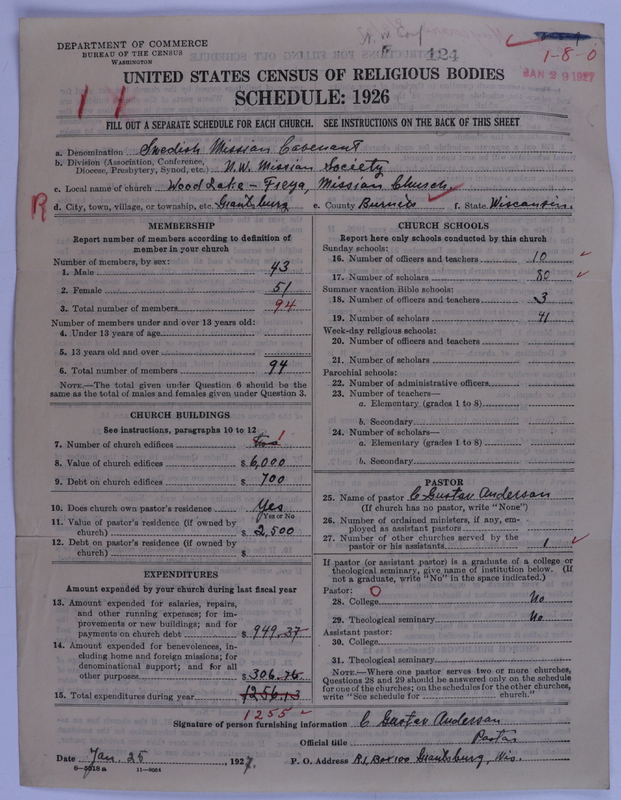 DEPARTMENT OF COMMERCE
BUREAU OF THE CENSUS
WASHINGTON
124
1-8-0
JAN 29 1927
UNITED STATES CENSUS OF RELIGIOUS BODIES
SCHEDULE: 1926
FILL OUT A SEPARATE SCHEDULE FOR EACH CHURCH. SEE INSTRUCTIONS ON THE BACK OF THIS SHEET
a. Denomination Swedish Mission Covenant
b. Division (Association, Conference, Diocese, Presbytery, Synod, etc.) N.W. Mission Society
c. Local name of church Wood Lake - Freya, Mission Church
R
d. City, town, village, or township, etc. Grantsburg e. County Burnett f. State Wisconsin.
MEMBERSHIP
Report number of members according to definition of
member in your church
Number of members, by sex:
1. Male 43
2. Female 51
3. Total number of members 94
Number of members under and over 13 years old:
4. Under 13 years of age
5. 13 years old and over
6. Total number of members 94
NOTE.—The total given under Question 6 should be the
same as the total of males and females given under Question 3.
CHURCH BUILDINGS
See instructions, paragraphs 10 to 12
7. Number of church edifices two 1
8. Value of church edifices $ 6,000
9. Debt on church edifices $ 700
10. Does church own pastor's residence Yes
Yes or No
11. Value of pastor's residence (if owned by
church) $ 2,500
12. Debt on pastor's residence (if owned by
church) $
EXPENDITURES
Amount expended by your church during last fiscal year
13. Amount expended for salaries, repairs,
and other running expenses; for im-
provements or new buildings; and for
payments on church debt $ 949.37
14. Amount expended for benevolences, in-
cluding home and foreign missions; for
denominational support; and for all
other purposes $ 306.76
15. Total expenditures during year 1256.13
1255
CHURCH SCHOOLS
Report here only schools conducted by this church
Sunday schools:
16. Number of officers and teachers 10
17. Number of scholars 80
Summer vacation Bible schools:
18. Number of officers and teachers 3
19. Number of scholars 41
Week-day religious schools:
20. Number of officers and teachers
21. Number of scholars
Parochial schools:
22. Number of administrative officers
23. Number of teachers—
a. Elementary (grades 1 to 8)
b. Secondary
24. Number of scholars—
a. Elementary (grades 1 to 8)
b. Secondary
PASTOR
25. Name of pastor C Gustav Anderson
(If church has no pastor, write "None")
26. Number of ordained ministers, if any, em-
ployed as assistant pastors
27. Number of other churches served by the
pastor or his assistants 1
If pastor (or assistant pastor) is a graduate of a college or
theological seminary, give name of institution below. (If
not a graduate, write "No" in the space indicated.)
Pastor:
28. College No
29. Theological seminary No
Assistant pastor:
30. College
31. Theological seminary
NOTE.—Where one pastor serves two or more churches,
Questions 28 and 29 should be answered only on the schedule
for one of the churches; on the schedules for the other churches,
write "See schedule for church."
Signature of person furnishing information C Gustav Anderson
Official title Pastor
Date Jan. 25, 1927. P. O. Address R1, Box 100 Grantsburg, Wis.
6-5518a 11-8054